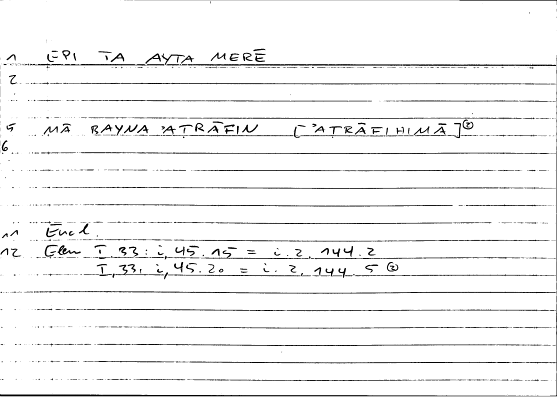 1 EPI TA AYTA MERĒ
2
5 MĀ BAYNA 'AṬRĀFIN ['AṬRĀFIHIMĀ] ②
6
11 Eucl.
12 Elem I, 33: i, 45.15 = i. 2, 144.2
I, 33: i, 45.20 = i. 2, 144.5 ②